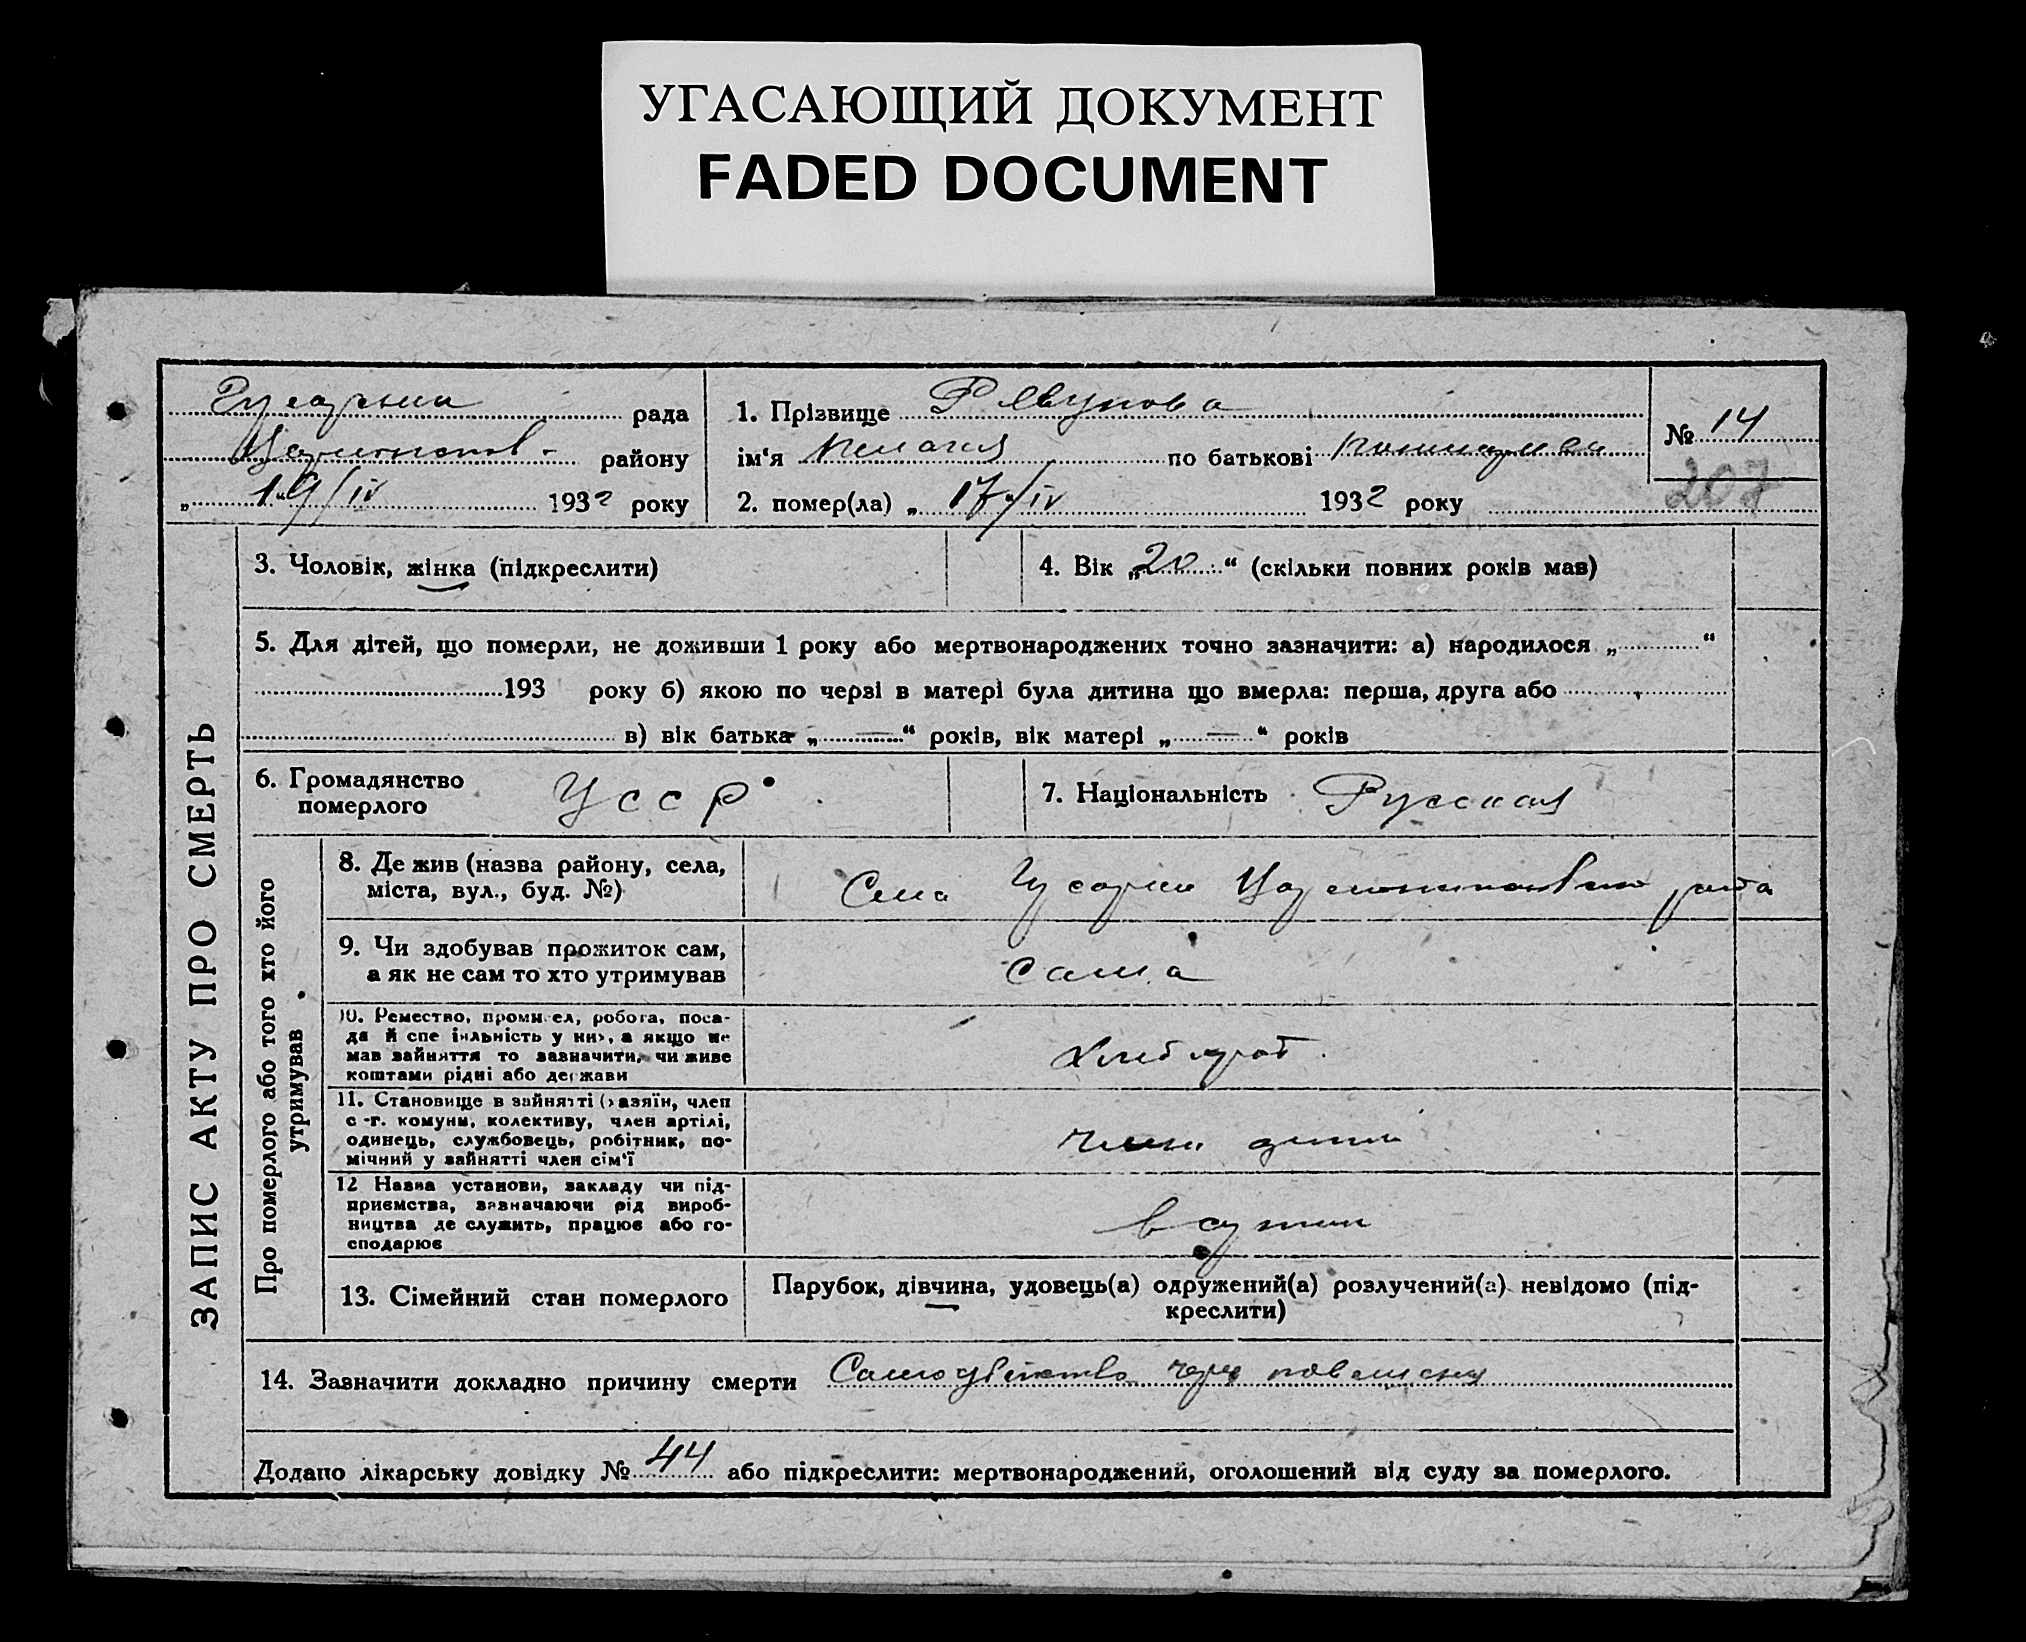 УГАСАЮЩИЙ ДОКУМЕНТ
FADED DOCUMENT
рада
району
„ 19/IV 1932 року
1. Прізвище Ревунова
ім‘я Пелагия по батькові
2. помер(ла) „ 17/IV 1932 року
№ 14
207
ЗАПИС АКТУ ПРО СМЕРТЬ
3. Чоловік, жінка (підкреслити)
4. Вік „ 20 “ (скільки повних років мав)
5. Для дітей, що померли, не доживши 1 року або мертвонароджених точно зазначити: а) народилося „ “
193 року б) якою по черзі в матері була дитина що вмерла: перша, друга або
в) вік батька „ — “ років, вік матері „ — “ років
6. Громадянство
померлого
УССР
7. Національність Русская
Про померлого або того хто його
утримував
8. Де жив (назва району, села,
міста, вул., буд. №)
Село
9. Чи здобував прожиток сам,
а як не сам то хто утримував
сама
10. Ремество, промисел, робота, поса-
да й спеціяльність у них, а якщо не
мав зайняття то зазначити, чи живе
коштами рідні або держави
хлебороб
11. Становище в зайнятті (хазяїн, член
с.-г. комуни, колективу, член артілі,
одинець, службовець, робітник, по-
мічний у зайнятті член сім‘ї
член
12 Назва установи, закладу чи під-
приємства, зазначаючи рід вироб-
ництва де служить, працює або го-
сподарює
13. Сімейний стан померлого
Парубок, дівчина, удовець(а) одружений(а) розлучений(а) невідомо (під-
креслити)
14. Зазначити докладно причину смерти Самоубійство через
Додано лікарську довідку № 44 або підкреслити: мертвонароджений, оголошений від суду за померлого.